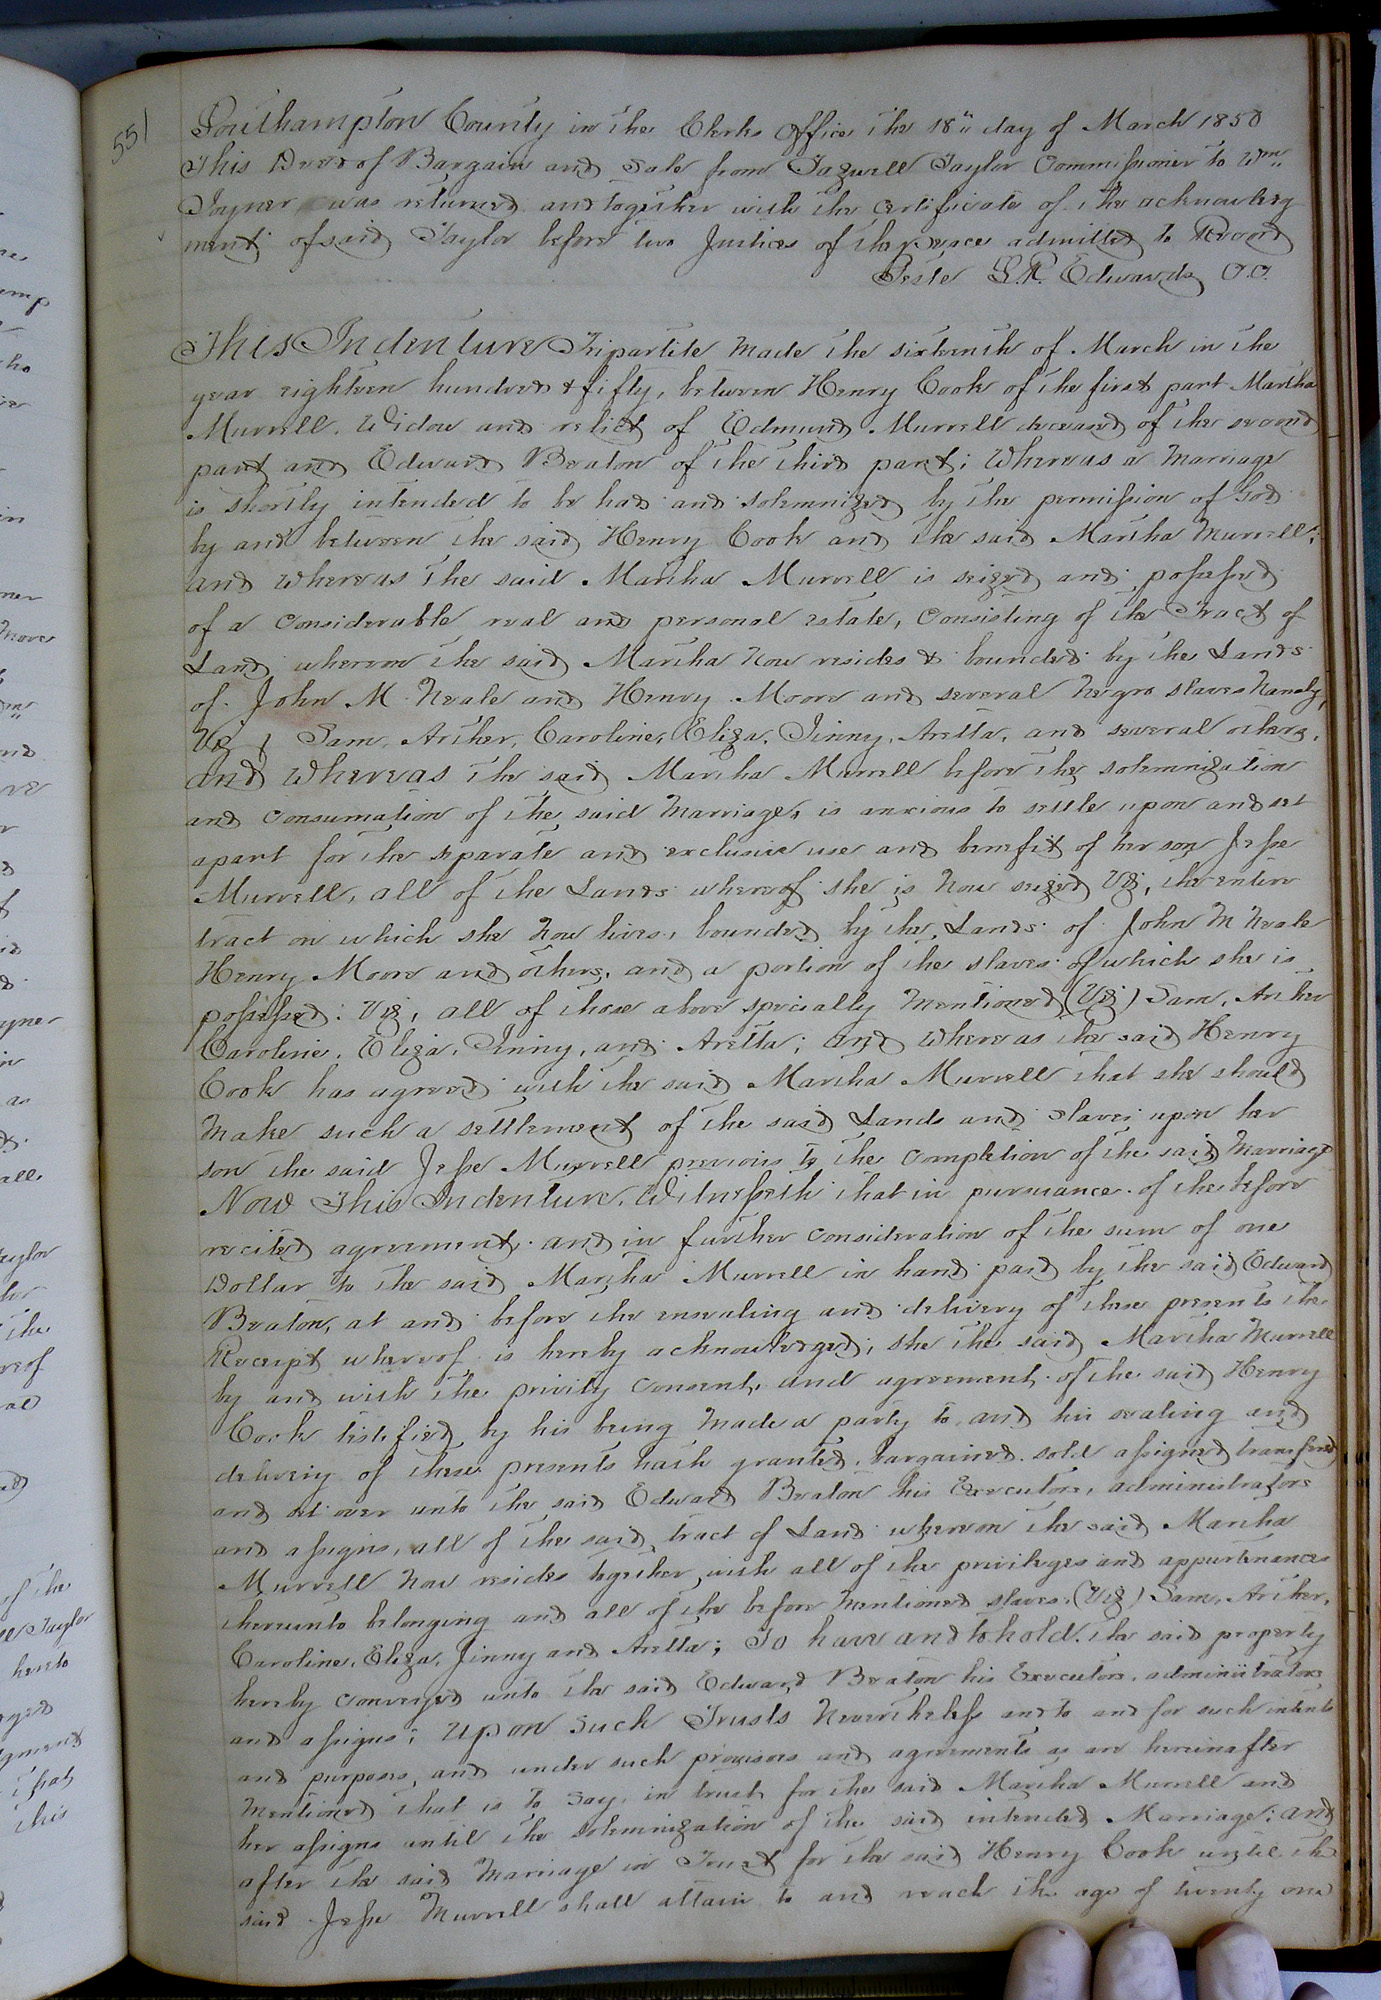 551
Southampton County in the Clerks Office the 18" day of March 1850
This Deed of Bargain and Sale from Tazwell Taylor Commissioner to Wm"
Joyner was returned and together with the certificate of the acknowledg
ment of said Taylor before two Justices of the peace admitted to Record
Teste L.R. Edwards C.C.
This Indenture Tripartite made the sixteenth of March in the
year eighteen hundred & fifty, between Henry Cook of the first part Martha
Murrell, Widow and relict of Edmund Murrell deceased of the second
part and Edward Beaton of the third part; Whereas a marriage
is shortly intended to be had and solemnized by the permission of God
by and between the said Henry Cook and the said Martha Murrell;
and whereas the said Martha Murrell is seized and possessed
of a considerable real and personal estate, consisting of the Tract of
Land whereon the said Martha now resides & bounded by the Lands
of John M Neale and Henry Moore and several negro slaves Namely,
Viz, Sam, Arther, Caroline, Eliza, Jinny, Aretta, and several others,
and whereas the said Martha Murrell before the solemnization
and consumation of the said marriage, is anxious to settle upon and set
apart for the separate and exclusive use and benefit of her son Jesse
Murrell, all of the Lands whereof she is now seized Viz, the entire
tract on which she now lives, bounded by the Lands of John M Neale
Henry Moore and others, and a portion of the slaves of which she is
possessed: Viz, all of those above specially mentioned (Viz) Sam, Arther
Caroline, Eliza, Jinny, and Aretta; and whereas the said Henry
Cook has agreed with the said Martha Murrell that she should
make such a settlement of the said Lands and slaves upon her
son the said Jesse Murrell previous to the completion of the said marriage
Now This Indenture Witnesseth that in pursuance of the before
recited agreement and in further consideration of the sum of one
Dollar to the said Martha Murrell in hand paid by the said Edward
Beaton, at and before the ensealing and delivery of these presents the
Receipt whereof is hereby acknowledged; she the said Martha Murrell
by and with the privity consent, and agreement of the said Henry
Cook testified by his being made a party to and his sealing and
delivery of these presents hath granted, bargained sold assigned transfered
and set over unto the said Edward Beaton his Executors, administrators
and assigns, all of the said tract of Land whereon the said Martha
Murrell now resides together with all of the privileges and appurtenances
thereunto belonging and all of the before mentioned slaves (Viz) Sam, Arther,
Caroline, Eliza, Jinny and Aretta; To have and to hold the said property
hereby conveyed unto the said Edward Beaton his Executors, administrators
and assigns; upon such Trusts Nevertheless and to and for such intents
and purposes, and under such provisoes and agreements as are hereinafter
mentioned that is to say, in trust for the said Martha Murrell and
her assigns until the solemnization of the said intended Marriage: and
after the said marriage in Trust for the said Henry Cook until the
said Jesse Murrell shall attain to and reach the age of twenty one